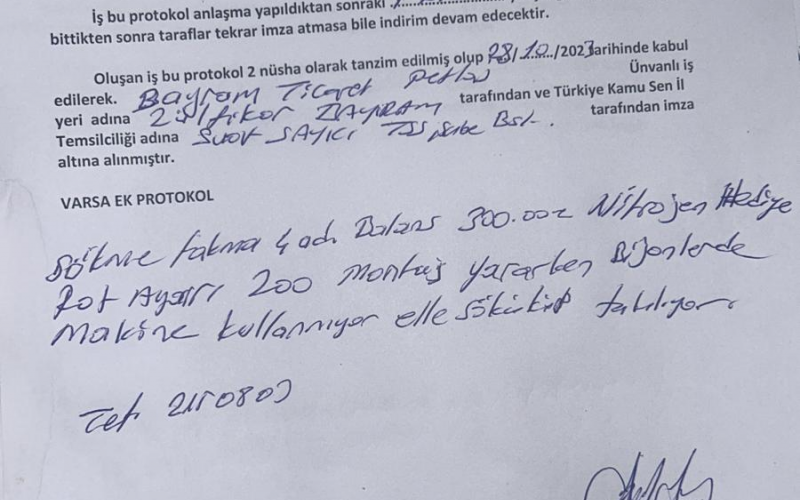 İş bu protokol anlaşma yapıldıktan sonraki
bittikten sonra taraflar tekrar imza atmasa bile indirim devam edecektir.
Oluşan iş bu protokol 2 nüsha olarak tanzim edilmiş olup 28/10/2023 tarihinde kabul
edilerek. Bayram Ticaret Petlas Ünvanlı iş
yeri adına Zülfikar BAYRAM tarafından ve Türkiye Kamu Sen İl
Temsilciliği adına Suat SAYICI Şube Bşk. tarafından imza
altına alınmıştır.
VARSA EK PROTOKOL
Sökme takma 4 ad. Balans 300.00z Nitrojen Hediye
Rot Ayarı 200 Montaj yaparken Bijonlerde
Makine kullanmıyor elle sökülüp takılıyor.
Tel. 2150803